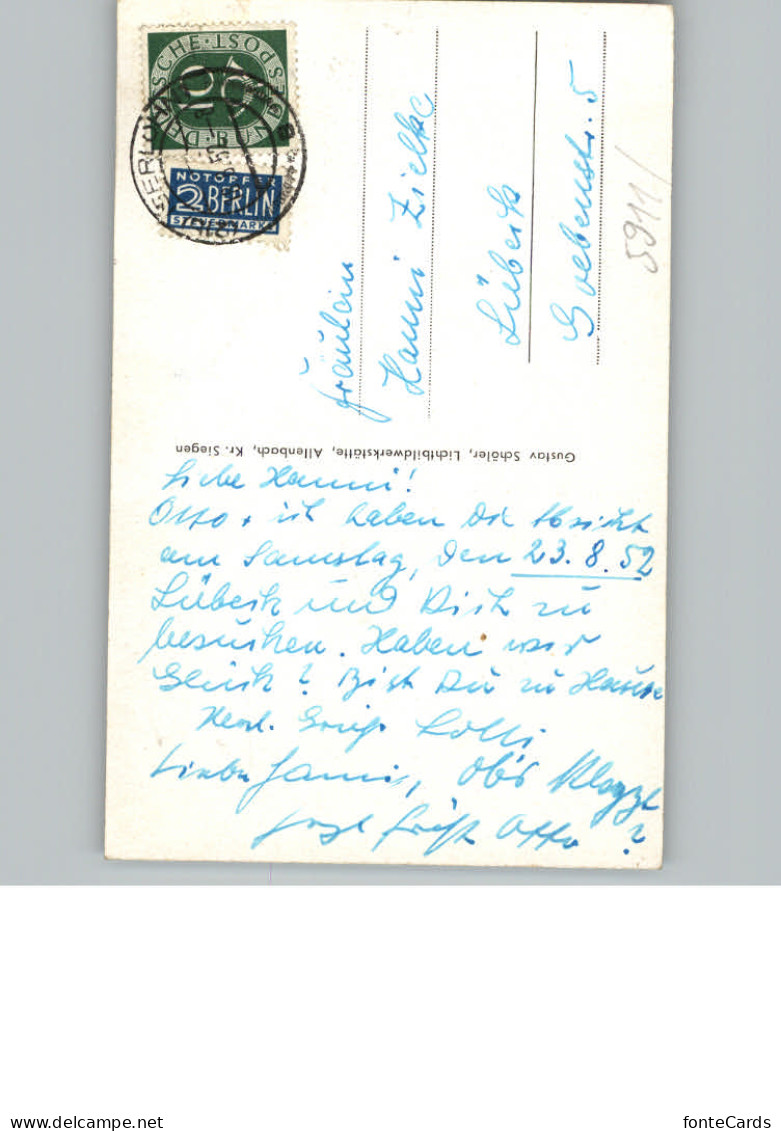 DEUTSCHE · POST · BUNDES
10
NOTOPFER
2 BERLIN
STEUERMARKE
ISERLOHN
Fräulein
Hanni Zielke
Lübeck
Goebenstr. 5
5911/
Gustav Schöler, Lichtbildwerkstätte, Allenbach, Kr. Siegen
Liebe Hanni!
Otto + ich haben die Absicht
am Samstag, den 23.8.52
Lübeck und Dich zu
besuchen. Haben wir
Glück? Bist Du zu Hause
Herzl. Grüße Lolli
Liebe Hanni, ob's klappt
grüßt Otto ?
fonteCards